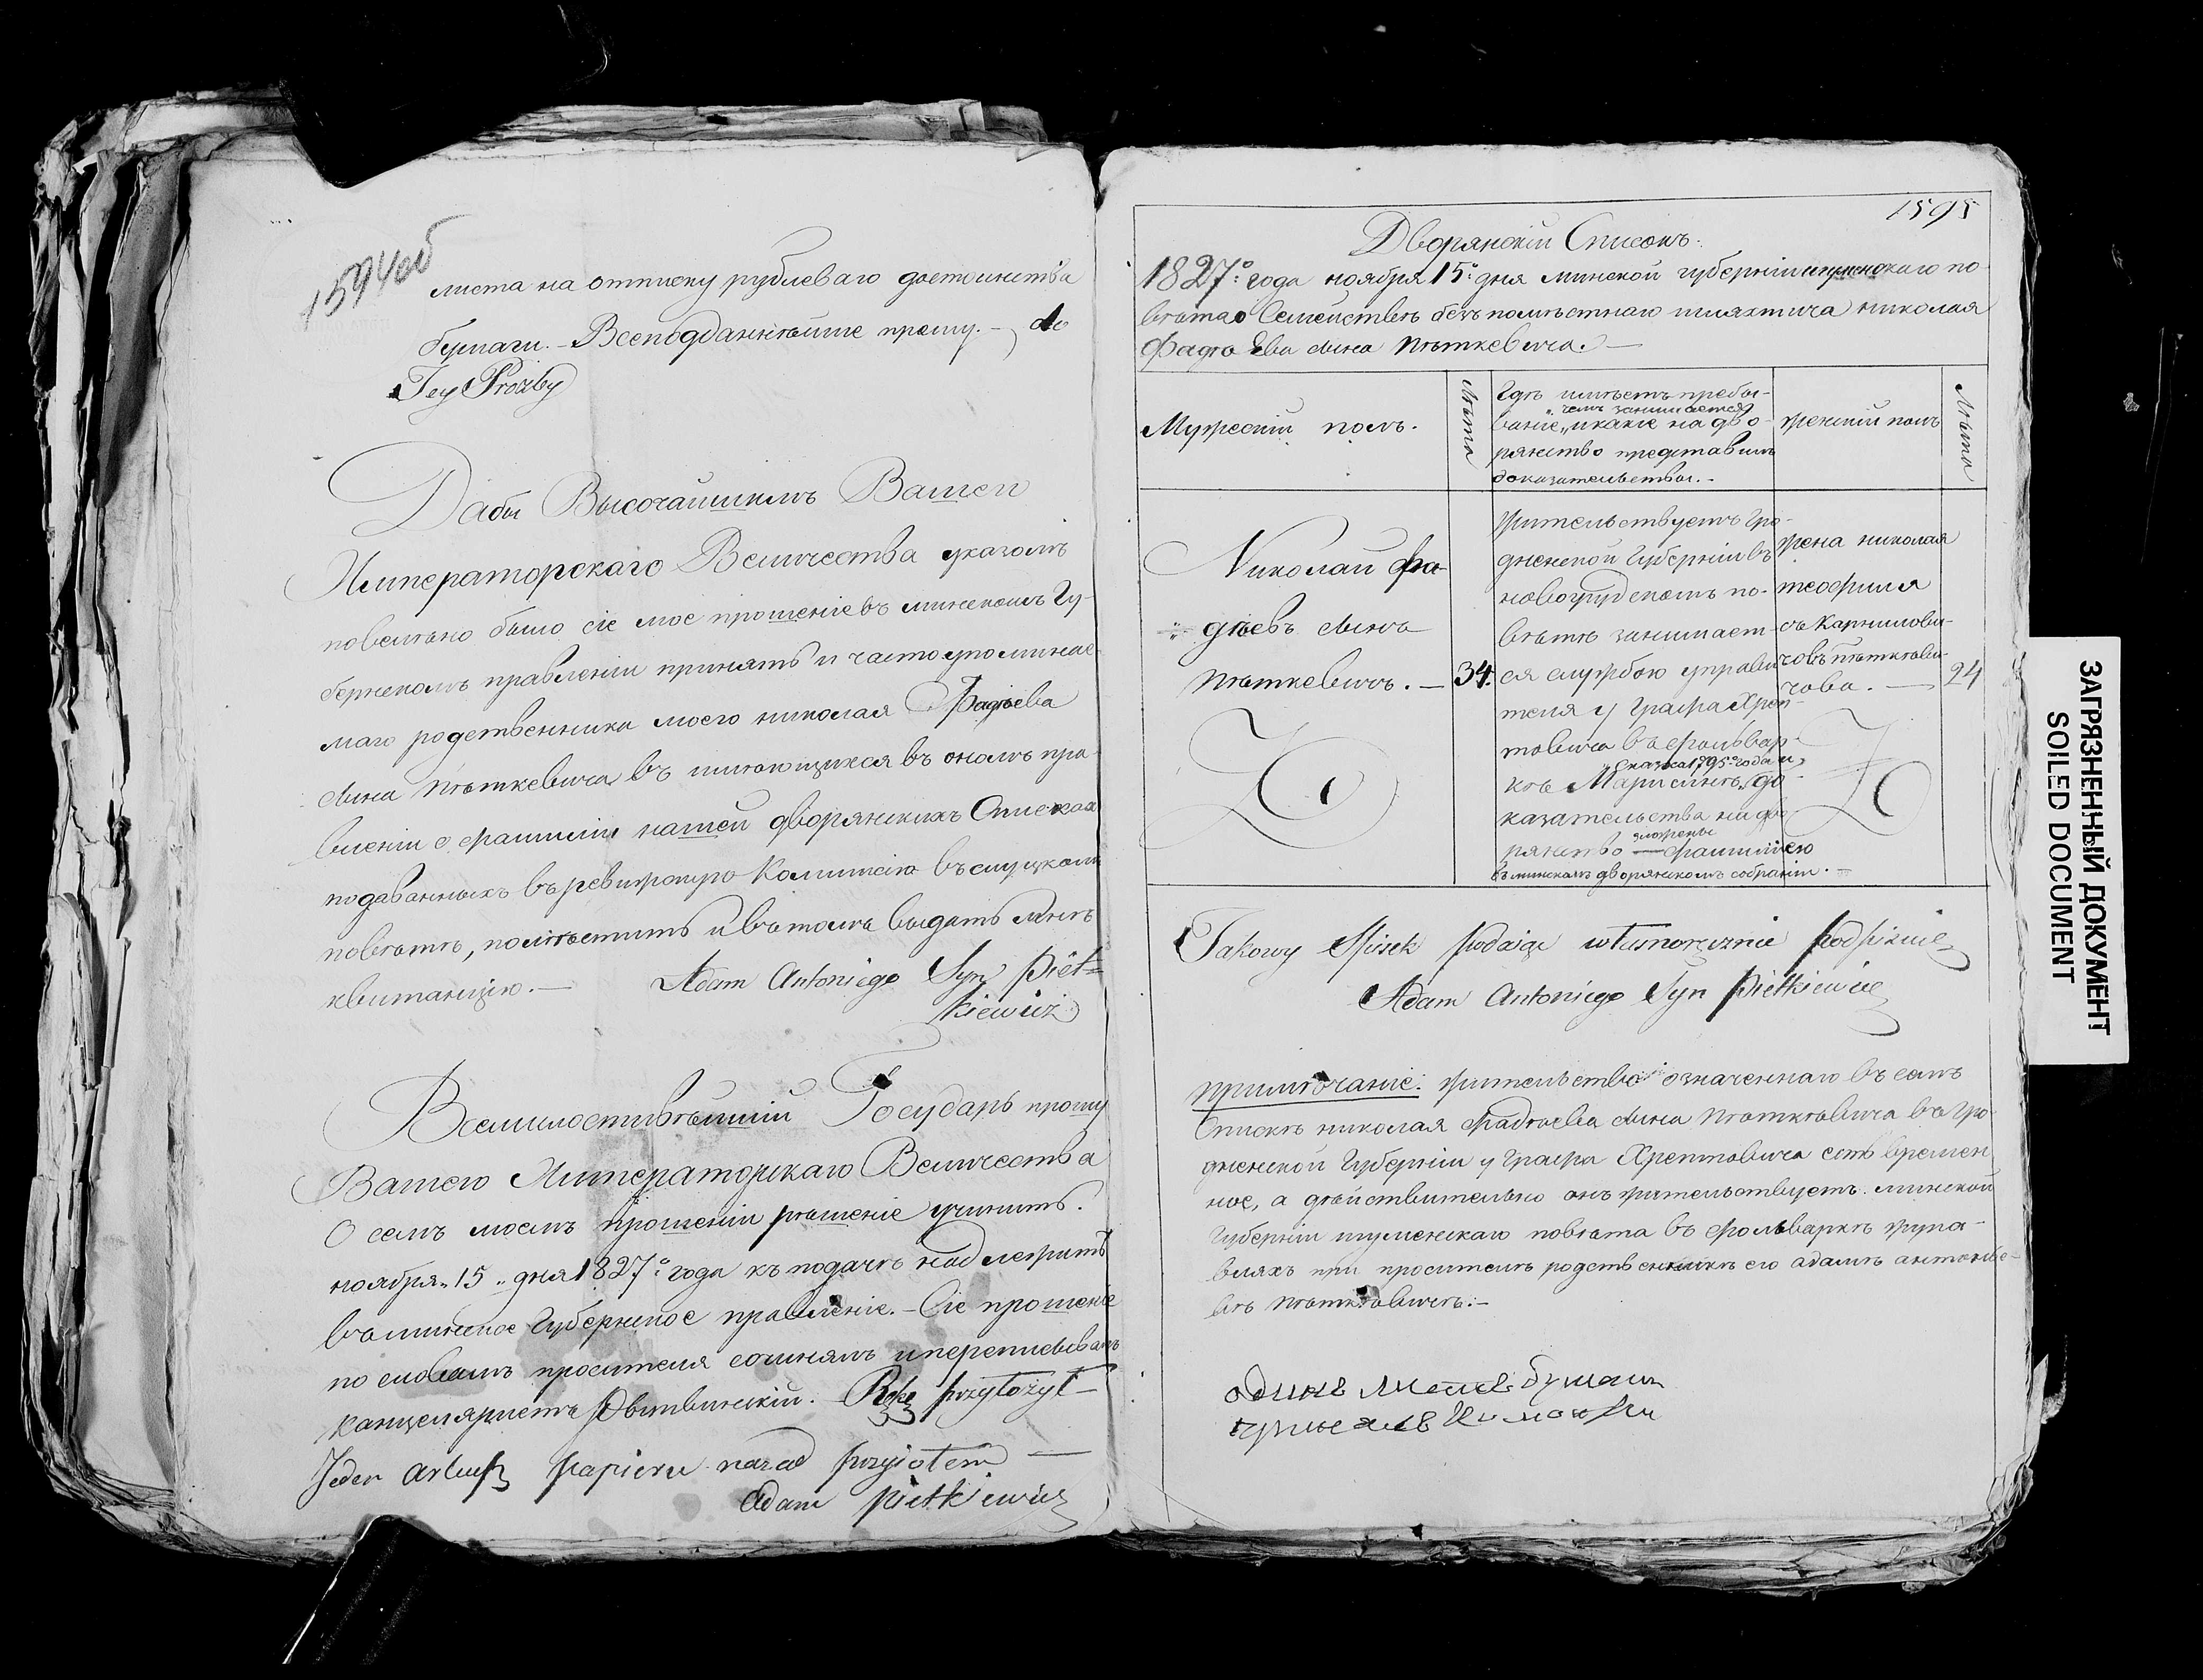 1594об
листа на отписку рублеваго достоинства
бумаги. – Всеподданнѣйше прошу. – do
Tey Prozby
Дабы Высочайшимъ Вашего
Императорскаго Величества указомъ
повелѣно было сіе мое прошеніе въ минскомъ Гу-
бернскомъ правленіи принять и часто упоминае-
маго родственника моего николая Фадѣева
сына пѣткевича въ имѣющихся въ ономъ пра-
вленіи о фамиліи нашей дворянскихъ Спискахъ
подаванныхъ въ ревизкую Комисію въ слуцкомъ
повѣтѣ, помѣстить и въ томъ выдать мнѣ
квитанцію. — Adam Antoniego Syn Piet=
kiewicz
Всемилостивѣйшій Государь прошу
Вашего Императорскаго Величества
О семъ моемъ прошеніи рѣшеніе учинить.
ноября „15„ дня 1827° года къ подачѣ надлежитъ
въ минское Губернское правленіе. – Сіе прошеніе
по словамъ просителя сочинялъ и переписывалъ
канцеляристъ Rękę przyłożył
Jeden arkusz papieru nazad przyiołem —
Adam Pietkiewicz
1595
Дворянскій Списокъ.
1827° года ноября 15° дня минской губерніи игуменскаго по-
вѣта о Семействѣ безпомѣстнаго шляхтича николая
Фадѣева сына пѣткевича. —
Мужескій полъ.
Лѣта
Гдѣ имѣетъ пребы-
чемъ занимается
ваніе, и какіе на дво-
рянство представилъ
доказательствы. –
женскій полъ
Лѣта
Николай фа-
дѣевъ сынъ
пѣткевичъ. —
34.
жительствуетъ гро-
дненской Губерніи въ
новогрудскомъ по-
вѣтѣ занимает-
ся службою управи-
теля у Графа Хреп-
товича въ фольвар-
Сказка 1795° года и
кѣ Марисинѣ, до-
казательства на дво-
зложены
рянство фамиліею
въ минскомъ дворянскомъ собраніи. –
жена николая
теофиля
съ Карниловичовъ пѣткѣви-
чова. —
24
Takowy Spisek podaiąc własnoręcznie podpisuię
Adam Antoniego Syn Pietkiewicz
примѣчаніе: жительство означеннаго въ семъ
Спискѣ николая Фадѣева сына пѣткѣвича въ гро-
дненской Губерніи у Графа Хрептовича есть времен-
ное, а дѣйствительно онъ жительствуетъ минской
Губерніи игуменскаго повѣта въ фольваркѣ жупа-
вляхъ при просителѣ родственникѣ его адамѣ антонье-
вѣ пѣткѣвичѣ. –
одинъ листъ бумаги
ЗАГРЯЗНЕННЫЙ ДОКУМЕНТ
SOILED DOCUMENT